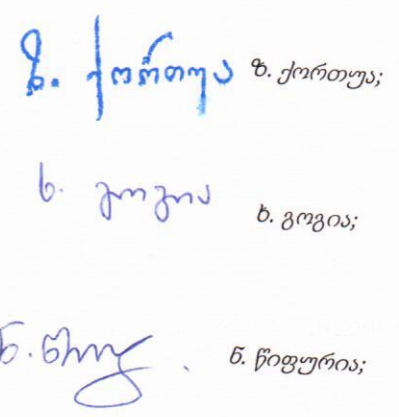 ზ. ქორთუა ზ. ქორთუა;
ხ. გოგია ხ. გოგია;
ნ. წიფურია;